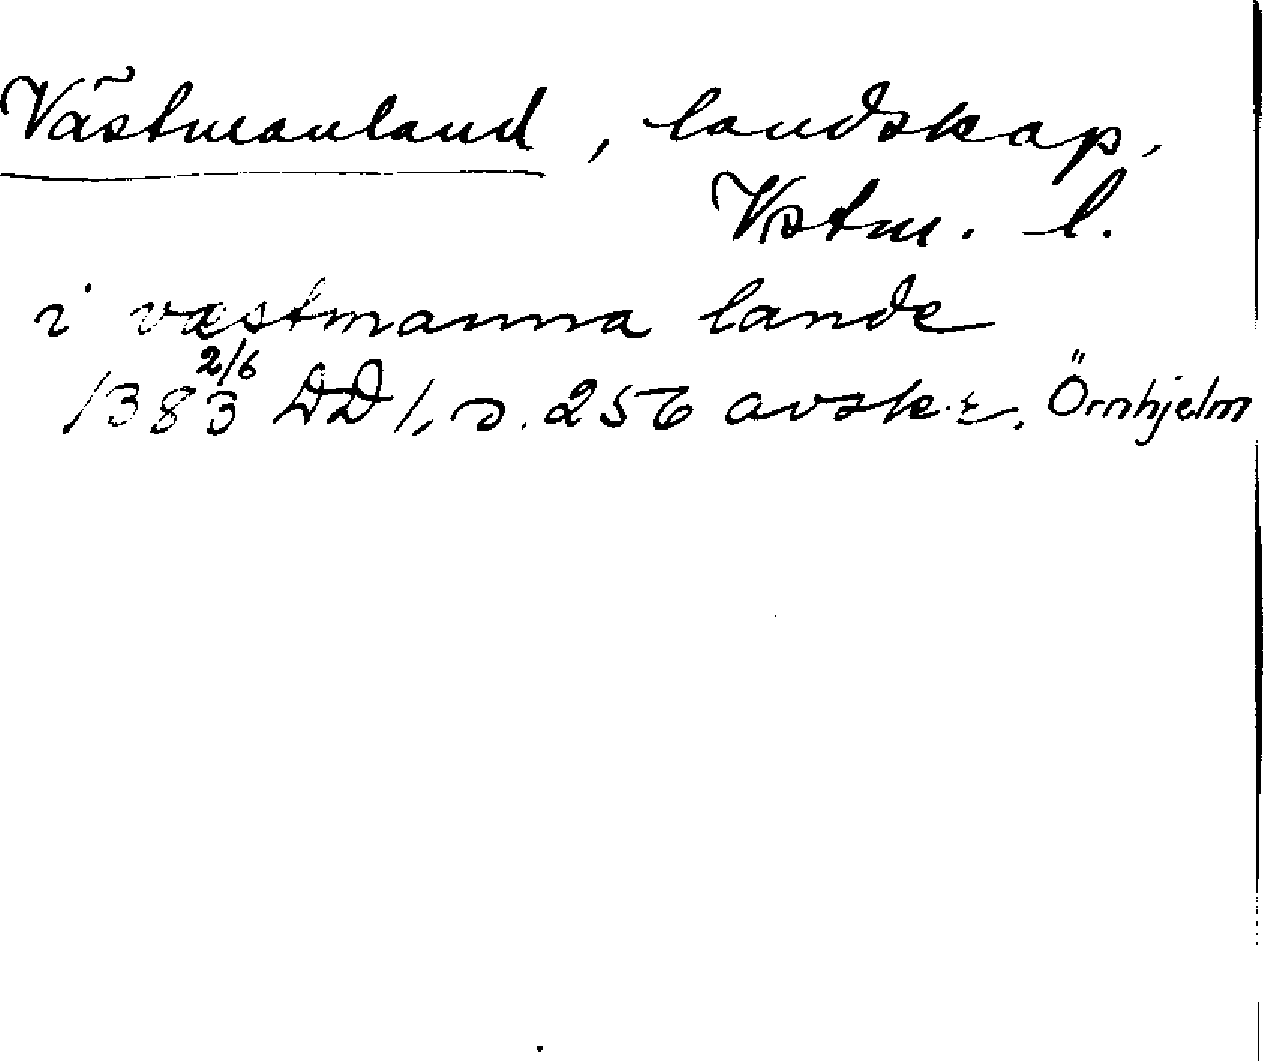 Västmanland, landskap,
Vstm. l.
i væstmanna lande
1383 2/6 DD 1, s. 256 avskr. Örnhjelm